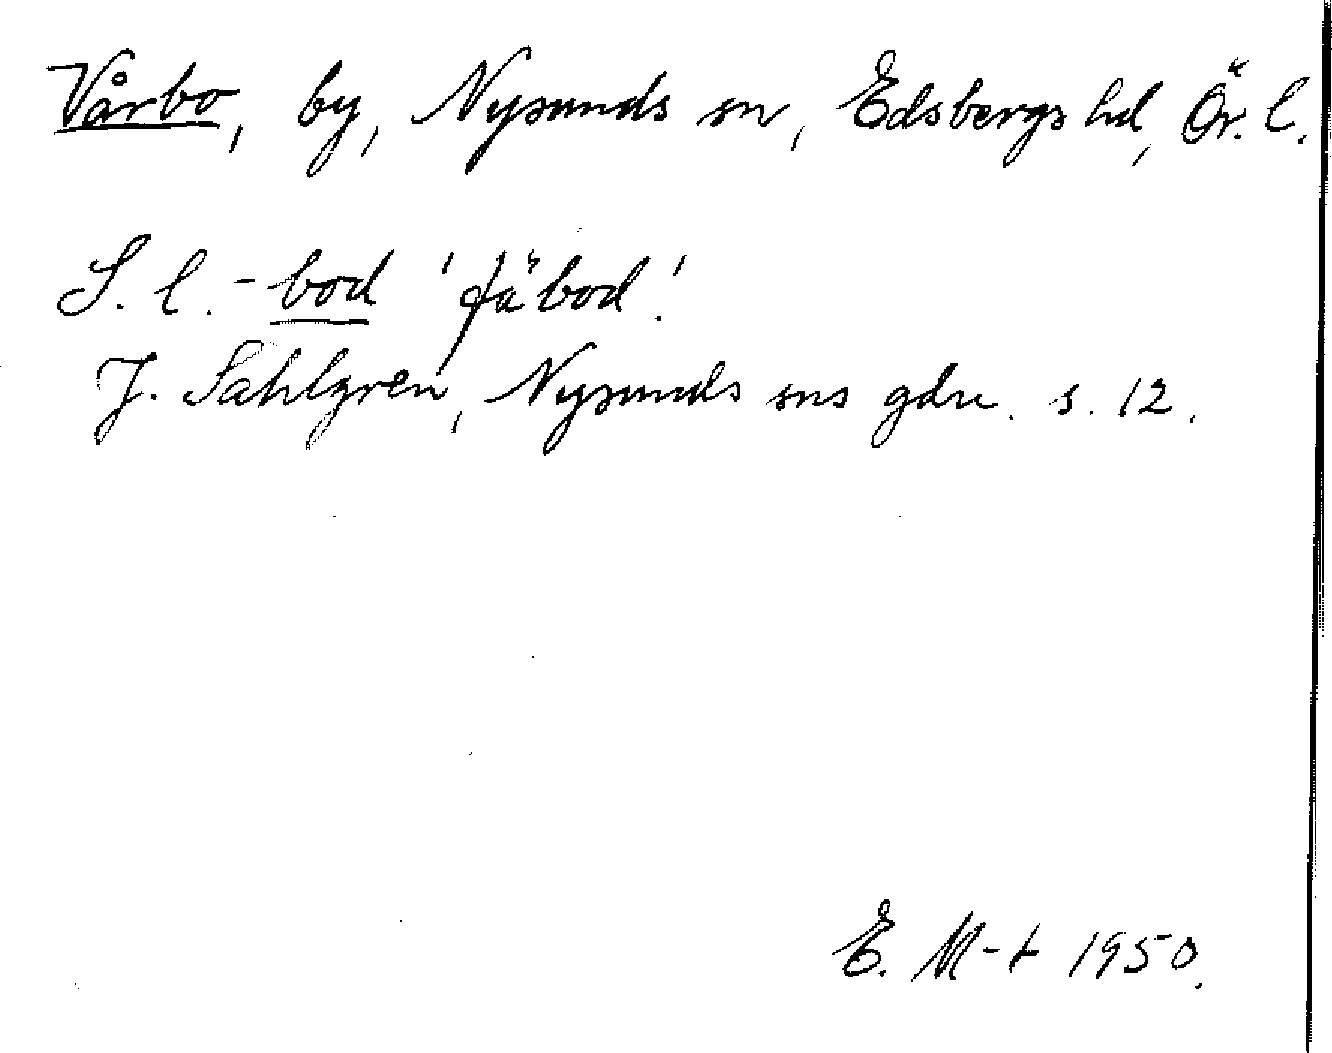 Vårbo, by, Nysunds sn, Edsbergs hd, Ör. l.
S. l. -bod 'fäbod'.
J. Sahlgren, Nysunds sns gdn. s. 12.
E. M-t 1950.